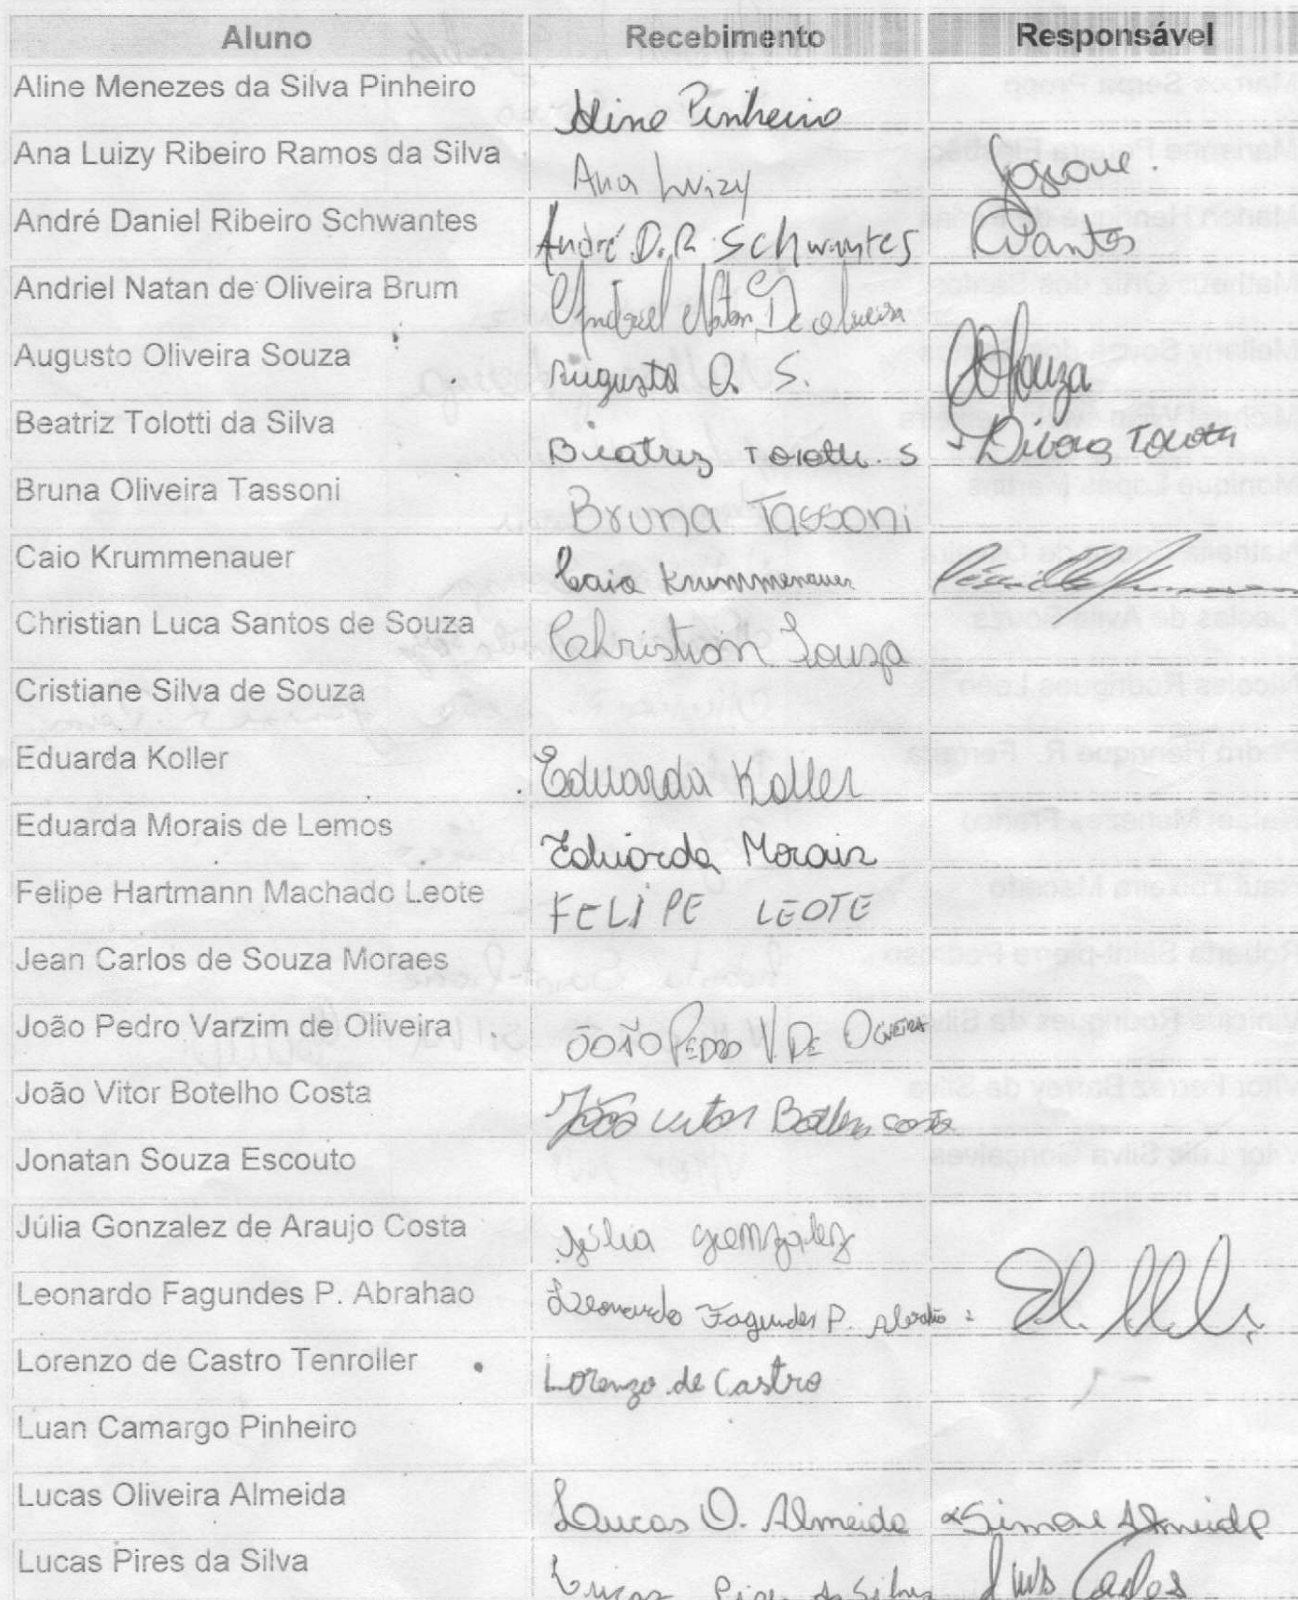 Aluno Recebimento Responsável
Aline Menezes da Silva Pinheiro Aline Pinheiro
Ana Luizy Ribeiro Ramos da Silva Ana Luizy Josiane.
André Daniel Ribeiro Schwantes André D.R. Schwantes
Andriel Natan de Oliveira Brum Andriel Natan De oliveira
Augusto Oliveira Souza Augusto O. S. Souza
Beatriz Tolotti da Silva Beatriz Tolotti. S Tolotti
Bruna Oliveira Tassoni Bruna Tassoni
Caio Krummenauer Caio Krummenauer
Christian Luca Santos de Souza Christian Souza
Cristiane Silva de Souza
Eduarda Koller Eduarda Koller
Eduarda Morais de Lemos Eduarda Morais
Felipe Hartmann Machado Leote FELIPE LEOTE
Jean Carlos de Souza Moraes
João Pedro Varzim de Oliveira JOÃO PEDRO V. DE OLIVEIRA
João Vitor Botelho Costa João Vitor Botelho costa
Jonatan Souza Escouto
Júlia Gonzalez de Araujo Costa Júlia Gonzalez
Leonardo Fagundes P. Abrahao Leonardo Fagundes P. Abrahão
Lorenzo de Castro Tenroller Lorenzo de Castro
Luan Camargo Pinheiro
Lucas Oliveira Almeida Lucas O. Almeida Simone Almeida
Lucas Pires da Silva Lucas Pires da Silva Luis Carlos